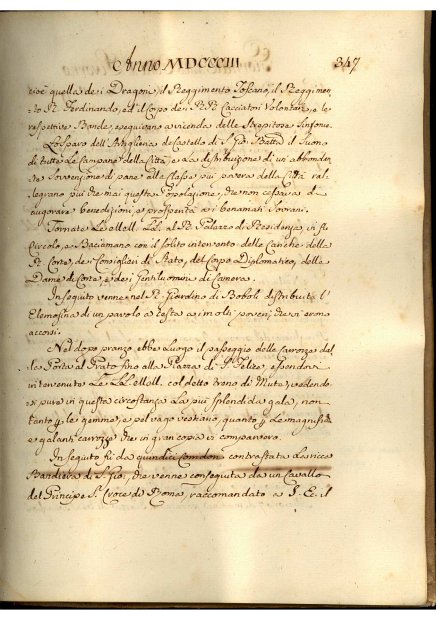 Anno MDCCCIII 347
cioè quella de i Dragoni, il Reggimento Toscano, il Reggimen-
to R. Ferdinando, ed il Corpo de i RR. Cacciatori Volontari, e le
respettive Bande, eseguirano a vicenda delle strepitose Sinfonie.
Lo sparo dell'Artiglieria de Castello di S. Gio. Batta, il Suono
di tutte le Campane della Città, e la distribuzione di un abbondan-
te sovvenzione di pane alle Classi più povere della Città ral-
legrano più che mai questa Popolazione, che non cessava di
augurare benedizioni, e prosperità a i benamati Sovrani.
Tornate Le MM. LL. al R. Palazzo di Residenza, vi fu
Circolo, e Baciamano con il solito intervento delle Cariche della
R. Corte, de i Consiglieri di Stato, del Corpo Diplomatico, delle
Dame di Corte, e de i Gentiluomini di Camera.
In seguito venne nel R. Giardino di Boboli distribuita l'
Elemosina di un paolo a testa a i molti poveri, che vi erano
accorsi.
Nel dopo pranzo ebbe Luogo il passeggio delle carrozze dal-
la Porta al Prato fino alla Piazza di S. Felice, essendovi
intervenute Le LL. MM. col detto treno di Muta, vedendo-
si pure in questa circostanza La più splendida gala, non
tanto per le gemme, e pel vago vestiario, quanto per Le magnifiche,
e galanti carrozze che in gran copia vi comparvero.
In seguito fù da quindici Corridori contrastata La ricca
Bandiera di S. Gio., che venne conseguita da un Cavallo
del Principe S. Croce di Roma, raccomandato a S. E. il